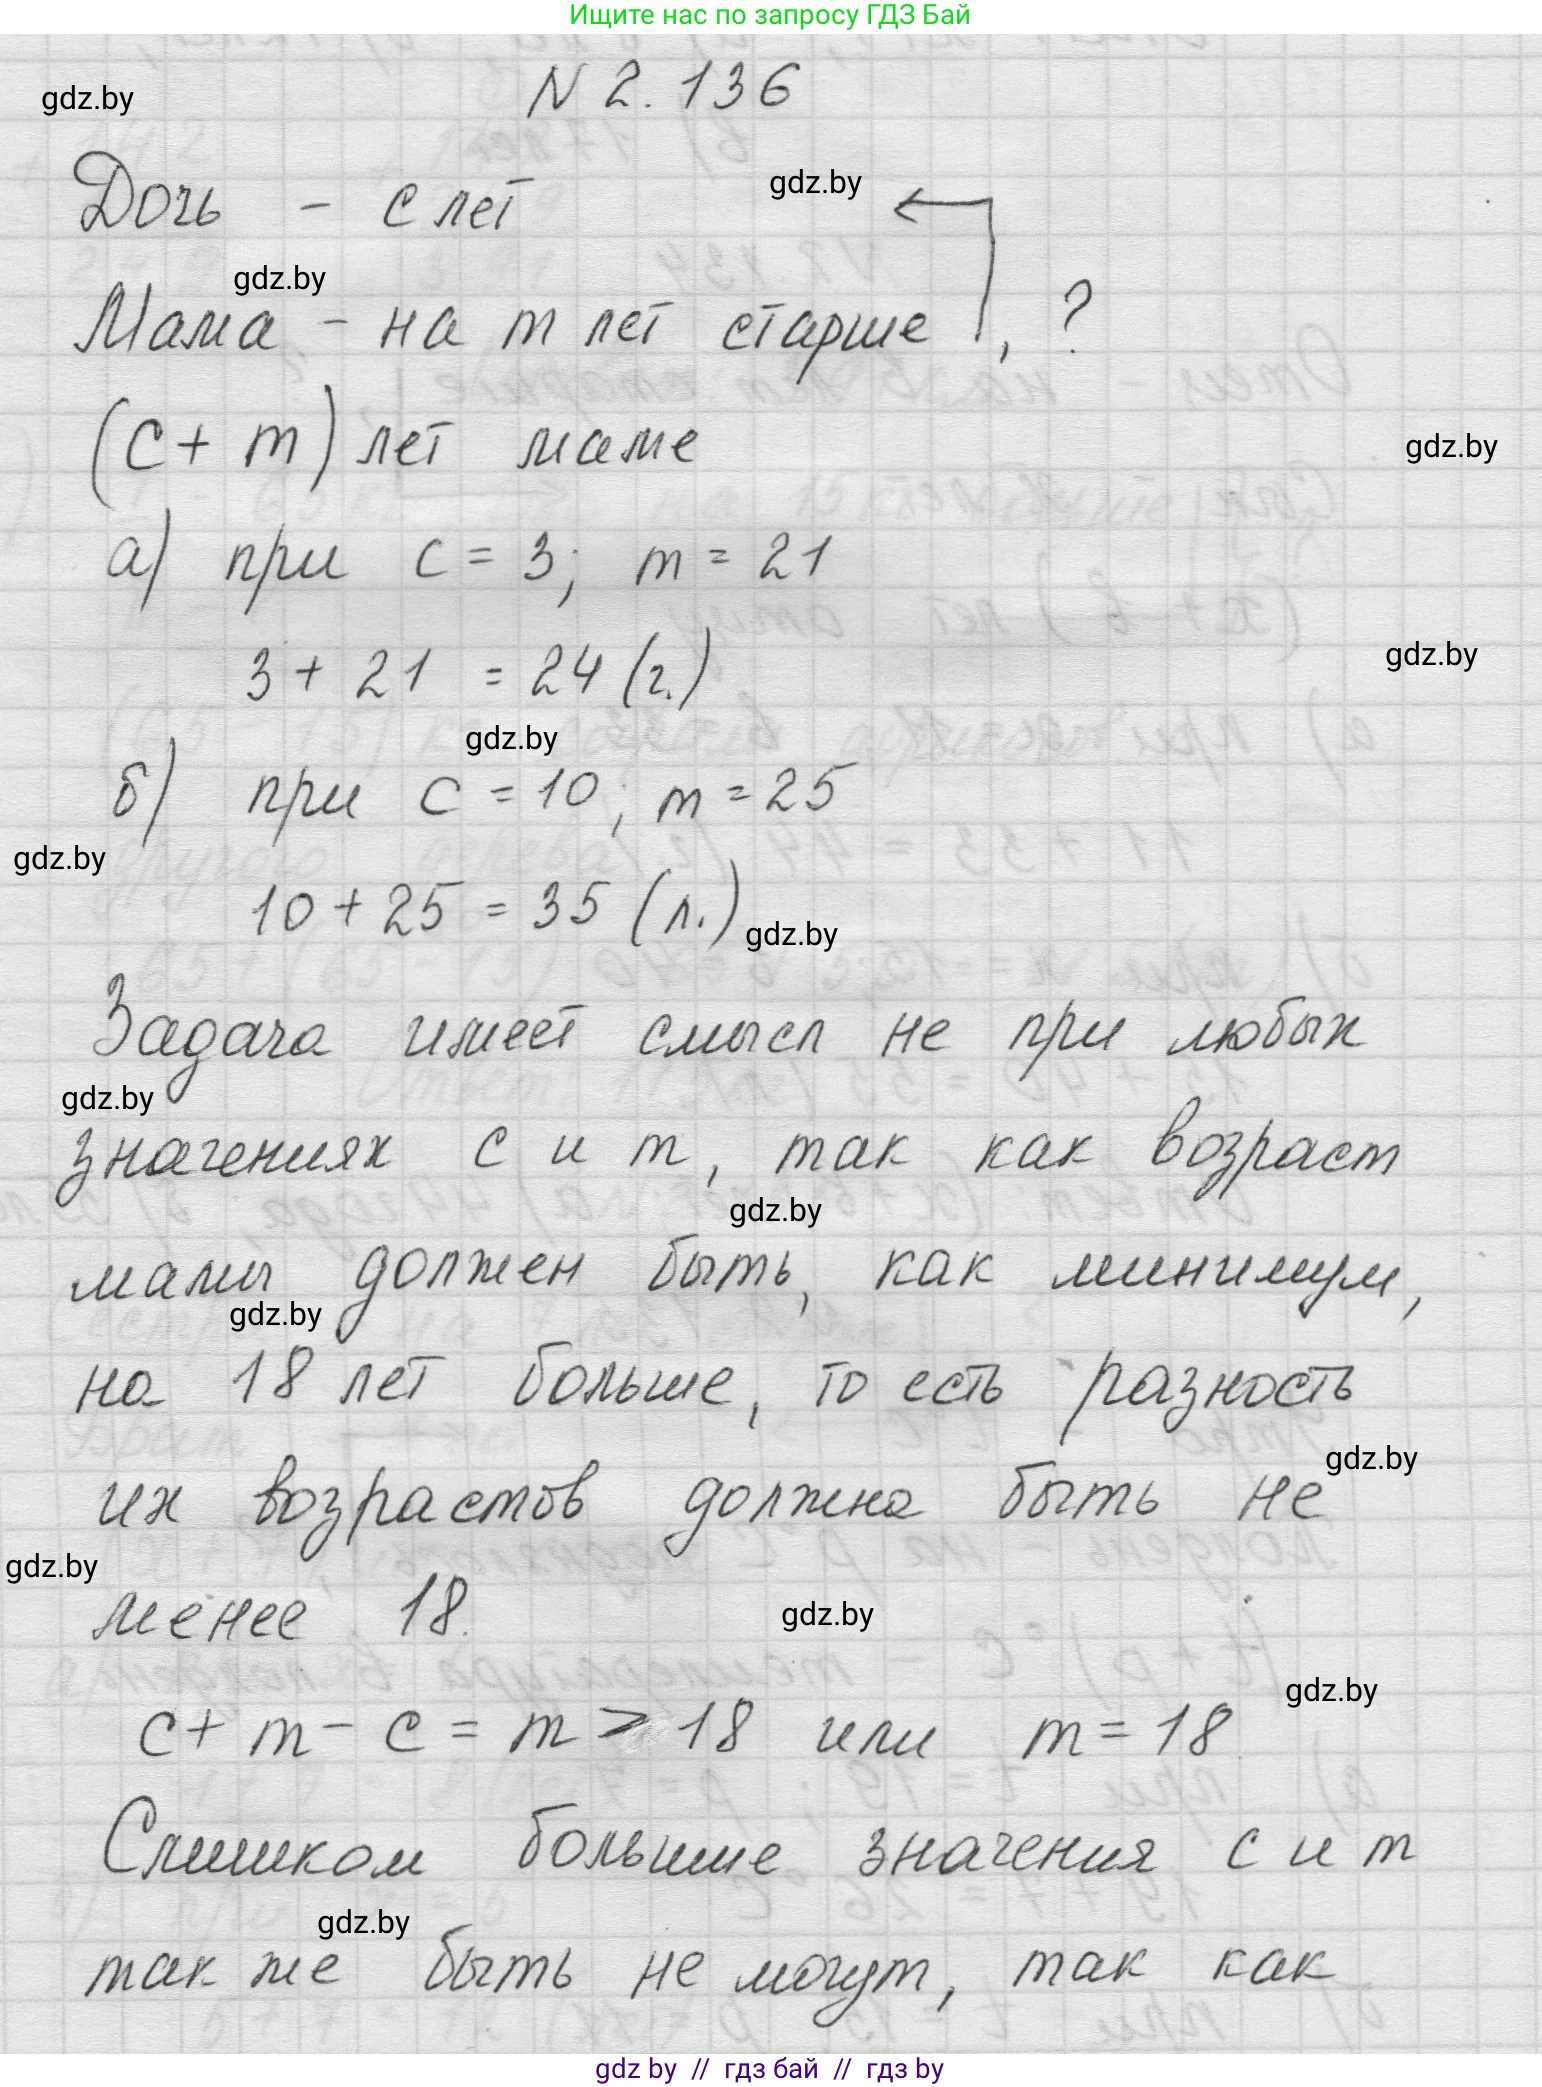 Ищите нас по запросу ГДЗ Бай
N 2.136
gdz.by
Дочь - с лет
gdz.by
gdz.by
Мама - на m лет старше, ?
(c + m) лет маме
gdz.by
а) при c = 3; m = 21
3 + 21 = 24 (г.)
gdz.by
gdz.by
б) при c = 10; m = 25
gdz.by
10 + 25 = 35 (л.)
gdz.by
Задача имеет смысл не при любых
gdz.by
значениях c и m, так как возраст
gdz.by
мамы должен быть, как минимум,
gdz.by
на 18 лет больше, то есть разность
gdz.by
их возрастов должна быть не
gdz.by
менее 18.
gdz.by
gdz.by
c + m - c = m > 18 или m = 18.
Слишком большие значения c и m
gdz.by
так же быть не могут, так как
gdz by // гдз бай // гдз by